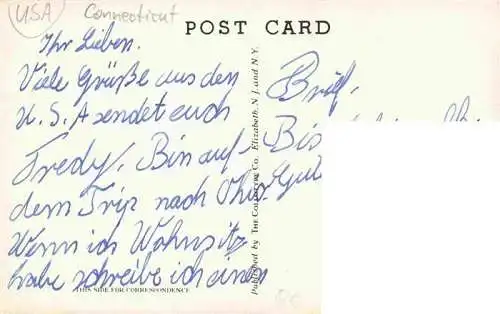 USA Connecticut
POST CARD
Ihr Lieben.
Viele Grüße aus den
U.S.A sendet euch
Fredy. Bin auf
dem Trip nach
Wenn ich Wohnsitz
habe schreibe ich einen
Brief.
Bis
Gut
Published by THE COLOURPICTURE CO. Elizabeth, N.J. and N.Y.
THIS SIDE FOR CORRESPONDENCE